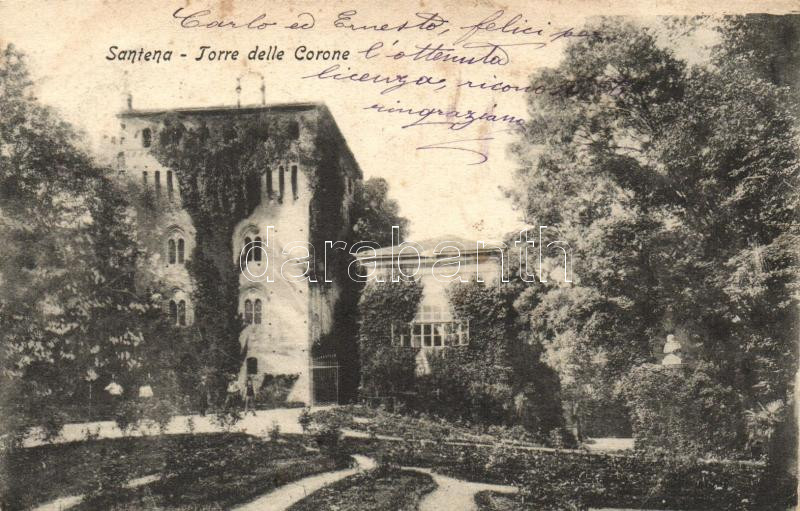 Carlo ed Ernesto, felici per
l'ottenuta
licenza, riconoscenti
ringraziano
Santena - Torre delle Corone
darabanth